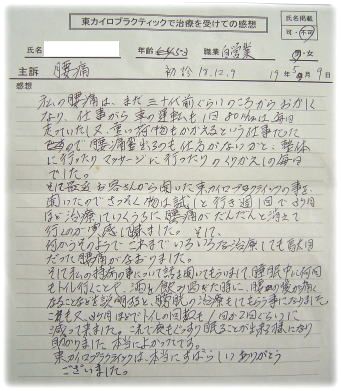 東カイロプラクティックで治療を受けての感想
氏名掲載
可・不可
氏名
年齢 53
職業 自営業
男・女
主訴 腰痛
初診 18.12.9
19年5月9日
感想
私の腰痛は、まだ三十代前ぐらいのころからおかしく
なり、仕事がら車の運転も1回80kmは毎日
走っていたし又、重い荷物もかかえるという仕事だった
ので腰痛が出るのも仕方がないかと、整体
に行ったりマッサージに行ったりのくりかえしの毎日
でした。
そして最近お客さんから聞いた東カイロプラクティックの事を
聞いたのでさっそく物は試しと行き週1回で3ヶ月
ほど治療していくうちに腰痛がだんだんと消えて
行くのが実感して来ました。そして、
何かうそのようでこれまでいろいろな治療しても駄目
だった腰痛がなおりました。
そして私の持病の事についても話を聞いてもらいまして、睡眠中に何回
もトイレ行くことや、酒を飲み過ぎた時に、
なることなどを説明すると、膀胱の治療もしてもらう事になりました。
これも又、3ヶ月ほどでトイレの回数も1回か2回ぐらいに
減って来ました。これで夜もぐっすり眠ることが出来る様になり
助かりました。本当によかったです。
東カイロプラクティックは、本当にすばらしいありがとう
ございました。